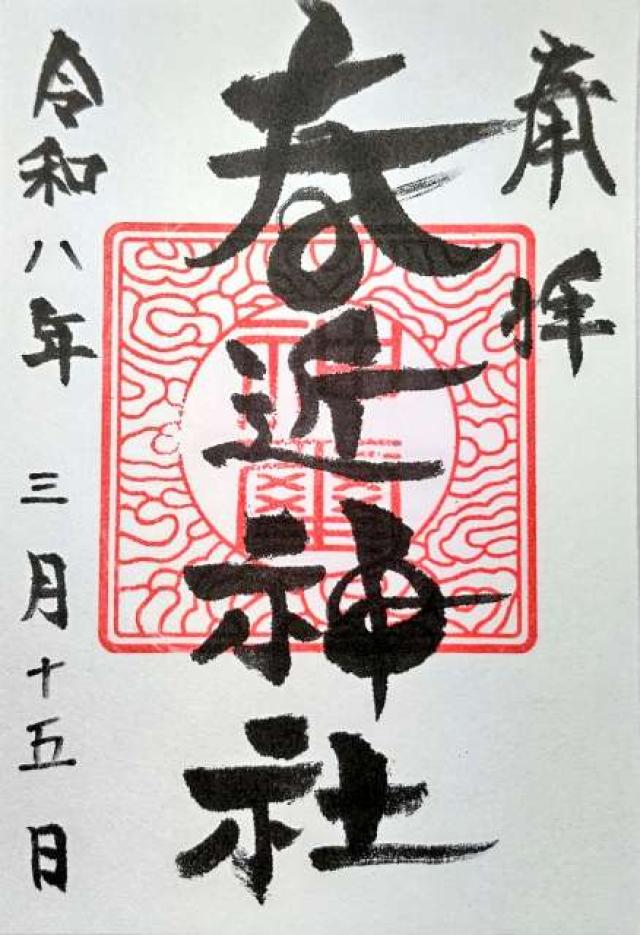 奉拝
春近神社
令和八年 三月十五日